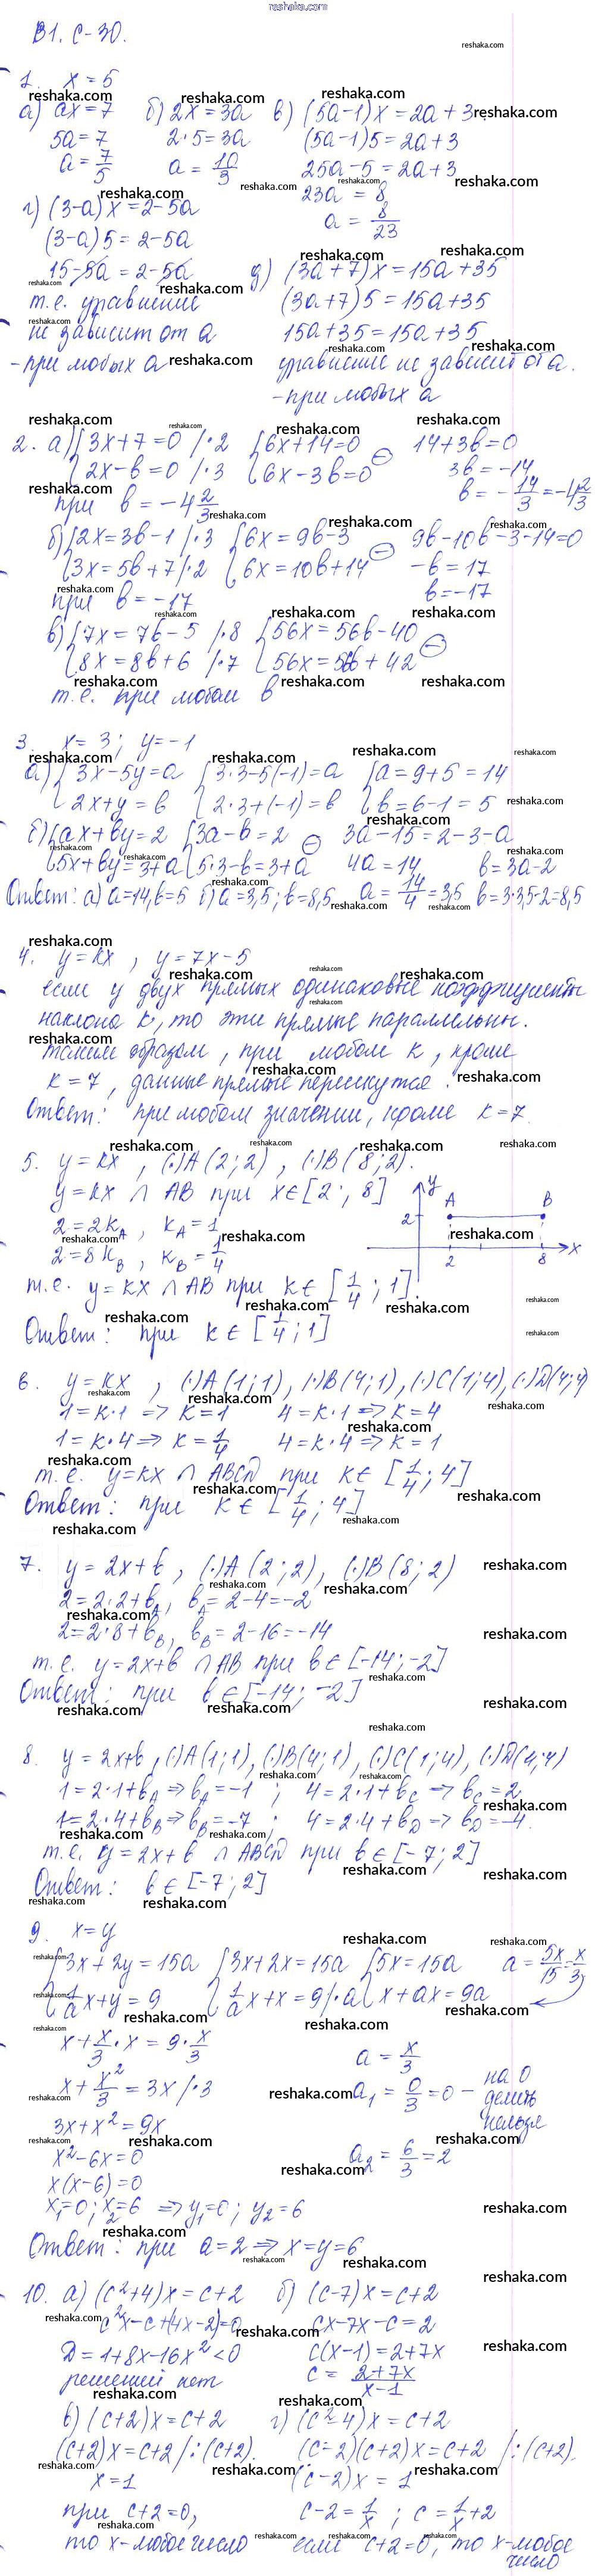 reshaka.com
В1. С-30.
1. x = 5
а) ax = 7
5a = 7
a = 7/5
б) 2x = 3a
2·5 = 3a
a = 10/3
в) (5a-1)x = 2a+3
(5a-1)5 = 2a+3
25a-5 = 2a+3
23a = 8
a = 8/23
г) (3-a)x = 2-5a
(3-a)5 = 2-5a
15-5a = 2-5a
т.е. уравнение
не зависит от a
- при любых a
д) (3a+7)x = 15a+35
(3a+7)5 = 15a+35
15a+35 = 15a+35
уравнение не зависит от a.
- при любых a
2. а) {3x+7=0 /·2 {6x+14=0 14+3b=0
{2x-b=0 /·3 {6x-3b=0 ⊖ 3b=-14
при b = -4 2/3 b = -14/3 = -4 2/3
б) {2x=3b-1 /·3 {6x=9b-3 9b-10b-3-14=0
{3x=5b+7 /·2 {6x=10b+14 ⊖ -b=17
при b=-17 b=-17
в) {7x=7b-5 /·8 {56x=56b-40
{8x=8b+6 /·7 {56x=56b+42 ⊖
т.е. при любом b
3. x=3; y=-1
а) {3x-5y=a {3·3-5(-1)=a {a=9+5=14
{2x+y=b {2·3+(-1)=b {b=6-1=5
б) {ax+by=2 {3a-b=2 ⊖ 3a-15=2-3-a
{5x+by=3+a {5·3-b=3+a 4a=14 b=3a-2
Ответ: а) a=14, b=5 б) a=3,5; b=8,5 a=14/4=3,5 b=3·3,5-2=8,5
4. y=kx, y=7x-5
если у двух прямых одинаковые коэффициенты
наклона k, то эти прямые параллельны.
таким образом, при любом k, кроме
k=7, данные прямые пересекутся.
Ответ: при любом значении, кроме k=7.
5. y=kx, (·)A(2;2), (·)B(8;2).
y=kx ∩ AB при x∈[2;8]
2=2kA, kA=1
2=8kB, kB=1/4
y A B 2 2 8 x
т.е. y=kx ∩ AB при k∈[1/4;1].
Ответ: при k∈[1/4;1]
6. y=kx, (·)A(1;1), (·)B(4;1), (·)C(1;4), (·)D(4;4)
1=k·1 => k=1 4=k·1 => k=4
1=k·4 => k=1/4 4=k·4 => k=1
т.е. y=kx ∩ ABCD при k∈[1/4;4]
Ответ: при k∈[1/4;4]
7. y=2x+b, (·)A(2;2), (·)B(8;2)
2=2·2+bA, bA=2-4=-2
2=2·8+bB, bB=2-16=-14
т.е. y=2x+b ∩ AB при b∈[-14;-2]
Ответ: при b∈[-14;-2]
8. y=2x+b, (·)A(1;1), (·)B(4;1), (·)C(1;4), (·)D(4;4)
1=2·1+bA => bA=-1; 4=2·1+bC => bC=2
1=2·4+bB => bB=-7; 4=2·4+bD => bD=-4.
т.е. y=2x+b ∩ ABCD при b∈[-7;2]
Ответ: b∈[-7;2]
9. x=y
{3x+2y=15a {3x+2x=15a {5x=15a a=5x/15=x/3
{1/a x+y=9 {1/a x+x=9 /·a {x+ax=9a
x+x/3·x=9·x/3
x+x²/3=3x /·3
3x+x²=9x
x²-6x=0
x(x-6)=0
x₁=0; x₂=6 => y₁=0; y₂=6
a=x/3
a₁=0/3=0 - на 0
делить
нельзя
a₂=6/3=2
Ответ: при a=2 => x=y=6
10. а) (c²+4)x=c+2
c²x-c+(4x-2)=0
D=1+8x-16x²<0
решений нет
б) (c-7)x=c+2
cx-7x-c=2
c(x-1)=2+7x
c=(2+7x)/(x-1)
в) (c+2)x=c+2
(c+2)x=c+2 /:(c+2).
x=1
при c+2=0,
то x-любое число
г) (c²-4)x=c+2
(c-2)(c+2)x=c+2 /:(c+2).
(c-2)x=1
c-2=1/x; c=1/x+2
если c+2=0, то x-любое
число